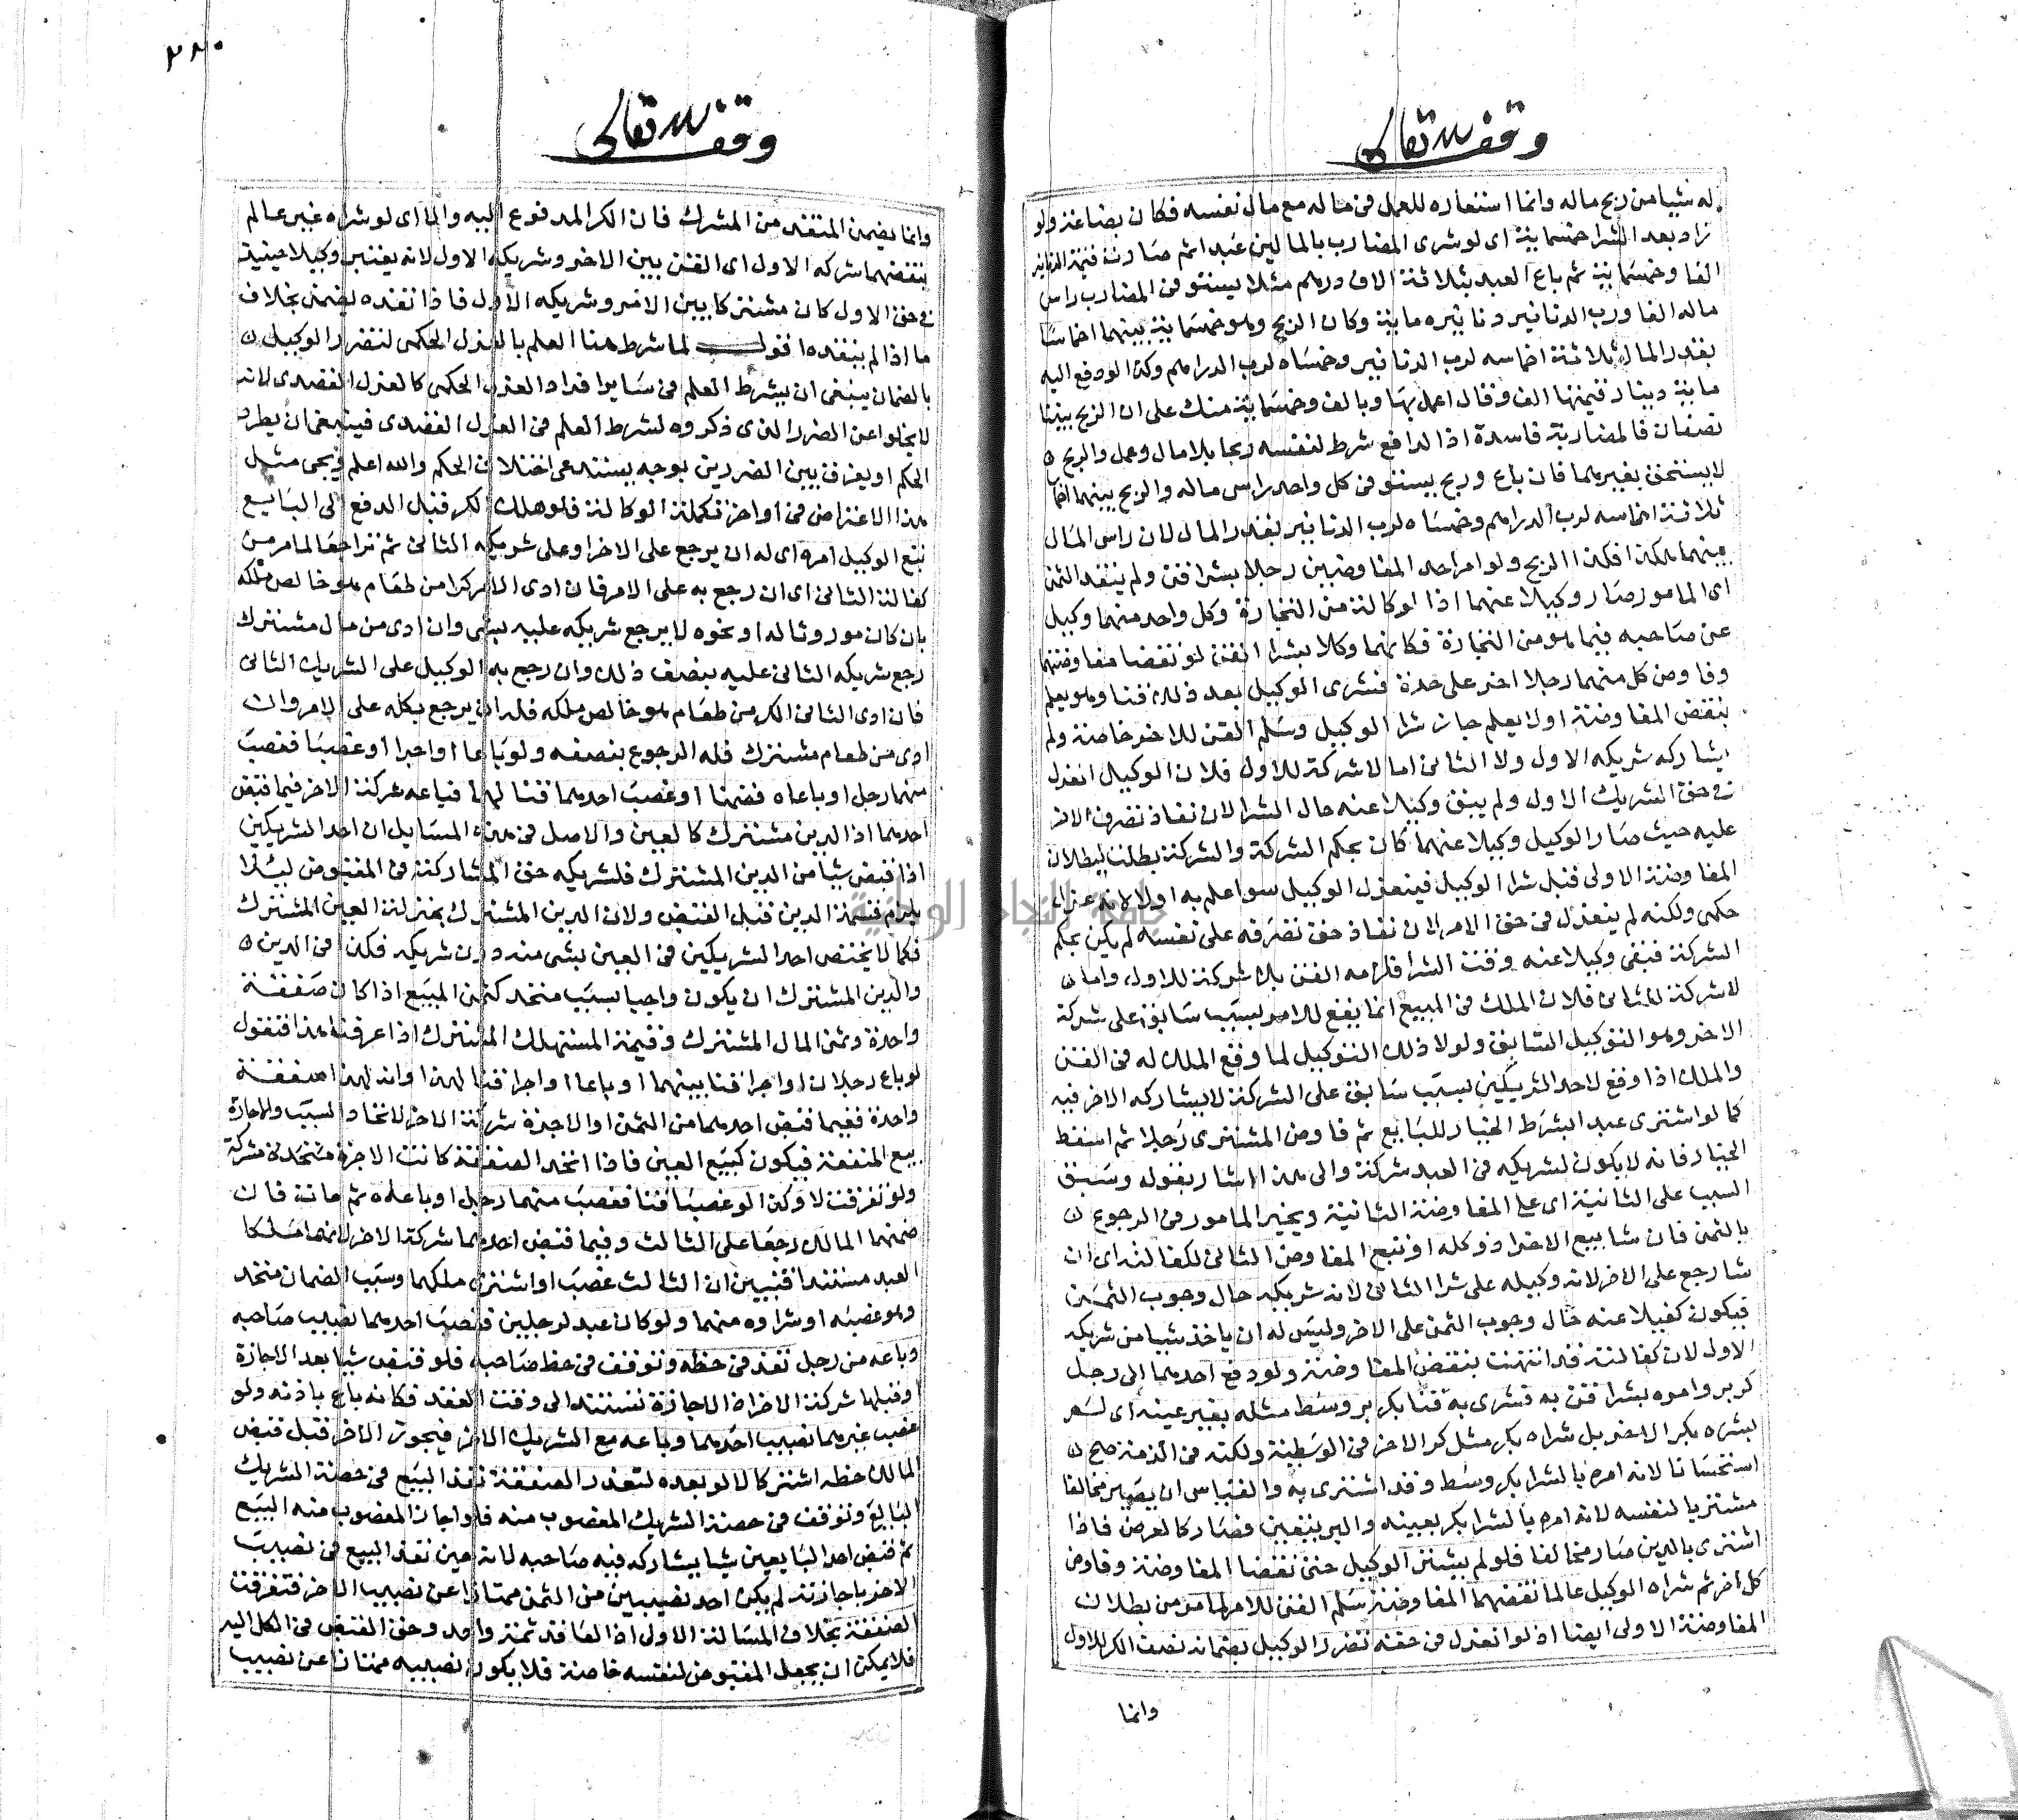 وقف لله تعالى
له شيا من ربح ماله وانما استعاره للعمل في ماله مع مال نفسه فكان بضاعة ولو
زاد بعد الشرا خمسماية اى لو شرى المضارب بالمالين عبدا ثم صارت قيمة الدنانير
الفا وخمسماية ثم باع العبد بثلاثة الاف درهم مثلا يستوفى المضارب راس
ماله الفا ورب الدنانير دنانيره ماية وكان الربح وهو خمسماية بينهما اخماسا
بقدر المال ثلاثة اخماسه لرب الدنانير وخمساه لرب الدراهم وكذا لو دفع اليه
ماية دينار قيمتها الف وقال اعمل بها وبالف وخمسماية منك على ان الربح بيننا
نصفان فالمضاربة فاسدة اذ الدافع شرط لنفسه ربحا بلا مال وعمل والربح
لا يستحق بغيرهما فان باع وربح يستوفى كل واحد راس ماله والربح بينهما اخما
ثلاثة اخماسه لرب الدراهم وخمساه لرب الدنانير بقدر المال لان راس المال
بينهما هكذا فكذا الربح ولو امر احد المفاوضين رجلا بشرا قن ولم ينقد الثمن
اى المامور صار وكيلا عنهما اذ الوكالة من التجارة وكل واحد منهما وكيل
عن صاحبه فيما هو من التجارة فكانهما وكلا بشرا القن لو نقضا مفاوضتهما
وفاوض كل منهما رجلا اخر على حدة فشرى الوكيل بعد ذلك قنا وهو يعلم
بنقض المفاوضة اولا يعلم جاز شرا الوكيل وسلم القن للاخر خاصة ولم
يشاركه شريكه الاول ولا الثانى اما لا شركة للاول فلان الوكيل انعزل
فى حق الشريك الاول ولم يبق وكيلا عنه حال الشرا لان نفاذ تصرف الامر
عليه حيث صار الوكيل وكيلا عنهما كان بحكم الشركة والشركة بطلت لبطلان
المفاوضة الاولى قبل شرا الوكيل فينعزل الوكيل سوا علم به اولا لانه عزل
حكمى ولكنه لم ينعزل فى حق الامر لان نفاذ حق تصرفه على نفسه لم يكن بحكم
الشركة فبقى وكيلا عنه وقت الشرا فلزمه القن بلا شركة للاول واما
لا شركة للثانى فلان الملك فى المبيع انما يقع للامر بسبب سابق على شركة
الاخر وهو التوكيل السابق ولولا ذلك التوكيل لما وقع الملك له فى القن
والملك اذا وقع لاحد الشريكين بسبب سابق على الشركة لا يشاركه الاخر فيه
كما لو اشترى عبد ا بشرط الخيار للبايع ثم فاوض المشترى رجلا ثم اسقط
الخيار فانه لا يكون لشريكه فى العبد شركة والى هذا اشار بقوله وسبق
السبب على الثانية اى على المفاوضة الثانية ويخير المامور فى الرجوع
بالثمن فان شا يبيع الاخر اذ وكله او يتبع المفاوض الثانى لكفالته اى ان
شا رجع على الاخر لانه وكيله على شرا الثانى لانه شريكه حال وجوب الثمن
فيكون كفيلا عنه حال وجوب الثمن على الاخر وليس له ان ياخذ شيا من شريكه
الاول لان كفالته قد انتهت بنقض المفاوضة ولو دفع احدهما الى رجل
كر بر وامره بشرا قن به فشرى به قنا بكر بر وسط مثله بغير عينه اى لم
يشره بكر الاخر بل شراه بكر مثل كر الاخر فى الوسطية ولكنه فى الذمة صح
استحسانا لانه امره بالشرا بكر وسط وقد اشترى به والقياس ان يصير مخالفا
مشتريا لنفسه لانه امره بالشرا بكر بعينه والبر يتعين فصار كالعرض فاذا
اشترى بالدين صار مخالفا فلو لم يشتر الوكيل حتى نقضا المفاوضة وفاوض
كل اخر ثم شراه الوكيل عالما نقضهما المفاوضة سلم القن للامر لما مر من بطلان
المفاوضة الاولى ايضا اذ لو انعزل فى حقه تضرر الوكيل بضمانه نصف الكر للاول
وانما
٢٨٠
وقف لله تعالى
وانما يضمن المنقد من المشترك فان الكر المدفوع اليه والا اى لو شراه غير عالم
بنقضهما شركه الاول اى القن بين الاخر وشريكه الاول لانه يعتبر وكيلا حينيذ
فى حق الاول كان مشتركا بين الاخر وشريكه الاول فاذا نقده يضمن بخلاف
ما اذا لم ينقده اقول لما شرط هنا العلم بالعزل الحكمى لتضرر الوكيل
بالضمان ينبغى ان يشترط العلم فى ساير افراد العزل الحكمى كالعزل القصدى لانه
لا يخلوا عن الضرر الذى ذكروه لشرط العلم فى العزل القصدى فينبغى ان يطرد
الحكم او يفرق بين الضررين بوجه يستدعى اختلاف الحكم والله اعلم ويجى مثل
هذا الاعتراض فى اواخر تكملة الوكالة فلو هلك الكر قبل الدفع الى البايع
تبع الوكيل امره اى له ان يرجع على الاخر او على شريكه الثانى ثم تراجعا لما مر من
كفالة الثانى اى ان رجع به على الامر فان ادى الامر كرا من طعام هو خالص ملكه
بان كان موروثا له او نحوه لا يرجع شريكه عليه بشى وان ادى من مال مشترك
رجع شريكه الثانى عليه بنصف ذلك وان رجع به الوكيل على الشريك الثانى
فان ادى الثانى الكر من طعام هو خالص ملكه فله ان يرجع بكله على الامر وان
ادى من طعام مشترك فله الرجوع بنصفه ولو باعا او اجرا او غصبا فغصب
منهما رجل او باعاه فضمنا او غصب احدهما قنا لهما فباعه شركة الاخر فيما قبض
احدهما اذ الدين مشترك كالعين والاصل فى هذه المسايل ان احد الشريكين
اذا قبض شيا من الدين المشترك فلشريكه حق المشاركة فى المقبوض ليلا
يلزم قسمة الدين قبل القبض ولان الدين المشترك بمنزلة العين المشترك
فكما لا يختص احد الشريكين فى العين بشى منه دون شريكه فكذا فى الدين
والدين المشترك ان يكون واجبا بسبب متحد كثمن المبيع اذا كان صفقة
واحدة وثمن المال المشترك وقيمة المستهلك المشترك اذا عرفت هذا فنقول
لو باع رجلان او اجرا قنا بينهما او باعا او اجرا قنا لهذا وانه لهذا صفقة
واحدة ففيما قبض احدهما من الثمن او الاجرة شركة الاخر لاتحاد السبب والاجارة
بيع المنفعة فيكون كبيع العين فاذا اتحد الصفقة كانت الاجرة متحدة مشتركة
ولو تفرقت لا وكذا لو غصبا قنا فغصب منهما رجل او باعاه ثم مات فان
ضمنهما المالك رجعا على الثالث وفيما قبض احدهما شركة الاخر لانهما ملكا
العبد مستندا فتبين ان الثالث غصب او اشترى ملكهما وسبب الضمان متحد
وهو غصبه او شراوه منهما ولو كان عبد لرجلين فغصب احدهما نصيب صاحبه
وباعه من رجل نفذ فى حظه وتوقف فى حظ صاحبه فلو قبض شيا بعد الاجازة
او قبلها شركة الاخر اذ الاجازة تستند الى وقت العقد فكانه باع باذنه ولو
غصب غيرهما نصيب احدهما وباعه مع الشريك الاخر فيجوز الاخر قبل قبض
المالك حظه اشتركا لا لو بعده لتعذر الصفقة نفذ البيع فى حصة الشريك
البايع وتوقف فى حصة الشريك المغصوب منه فلو اجاز المغصوب منه البيع
ثم قبض احد البايعين شيا يشاركه فيه صاحبه لانه حين نفذ البيع فى نصيب
الاخر باجازته لم يكن احد نصيبين من الثمن ممتازا عن نصيب الاخر فتفرقت
الصفقة بخلاف المسالة الاولى اذ العاقد ثمة واحد وحق القبض فى الكل اليه
فلا يمكن ان يجعل المقبوض لنفسه خاصة فلا يكون نصيبه ممتازا عن نصيب
جامعة النجاح الوطنية